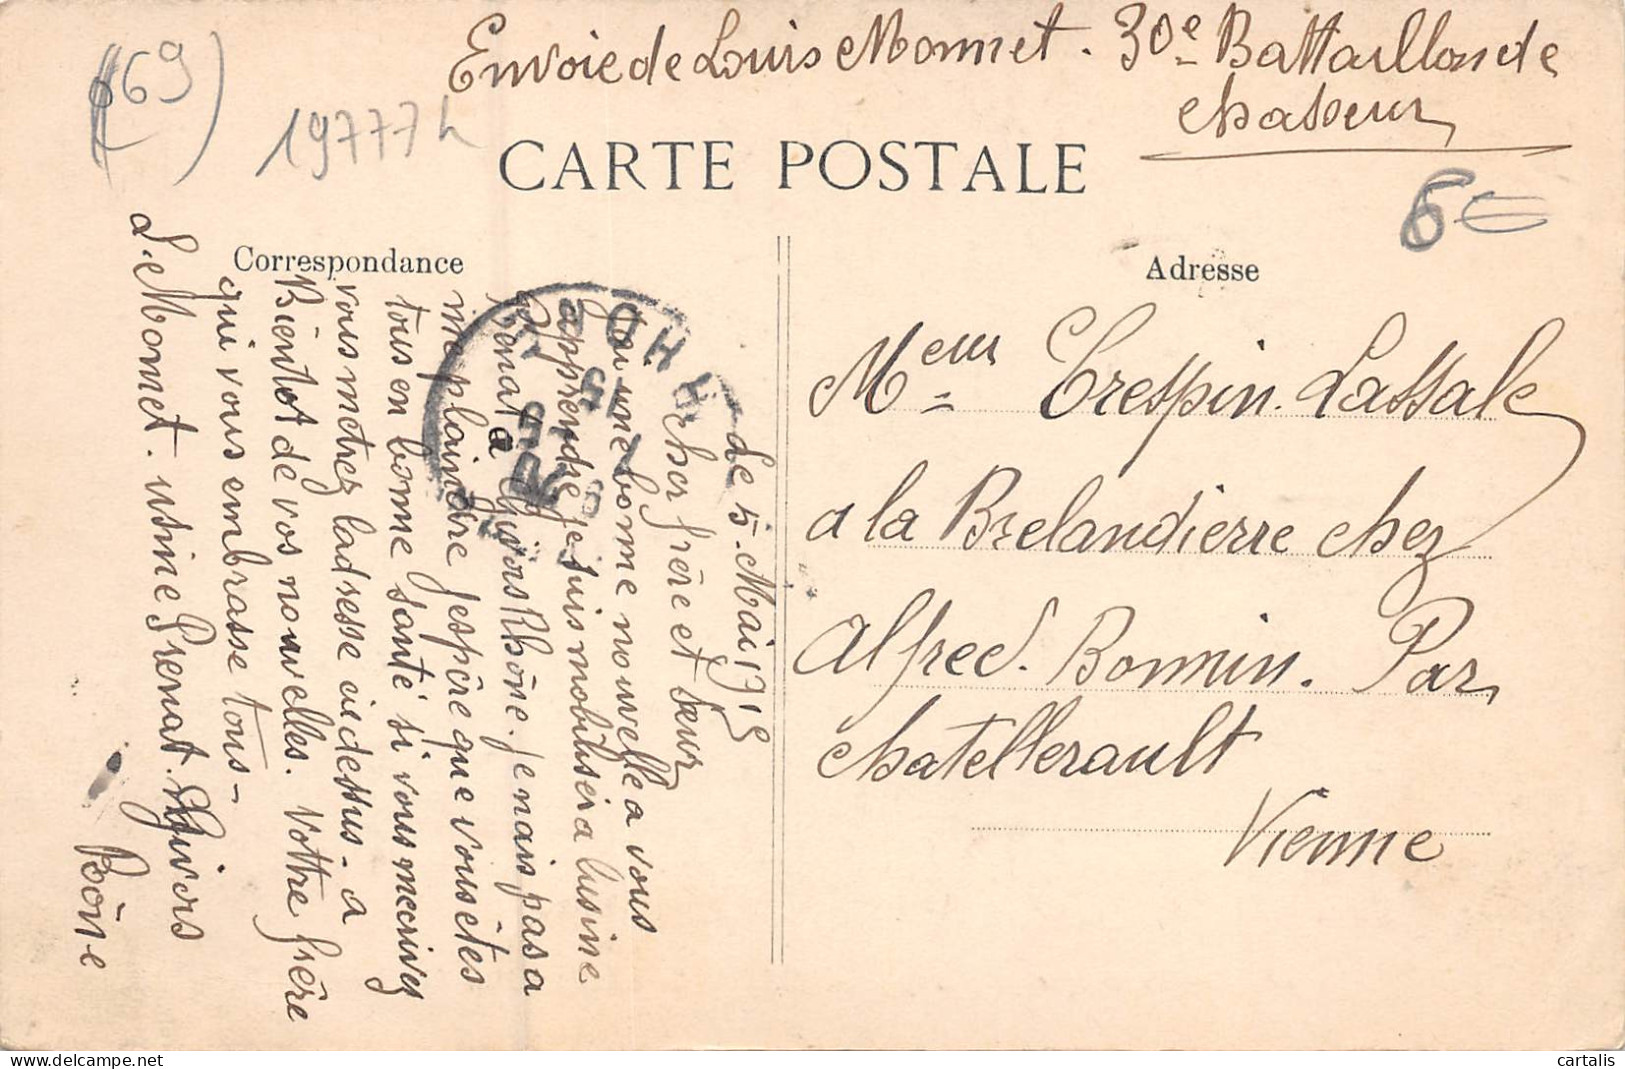 (69)
19777h
Envoie de Louis Monnet. 30e Battaillon de
chasseur
CARTE POSTALE
6€
Correspondance
Adresse
Le 5. Mai 1915
cher frère et seur
J'ai une bonne nouvelle a vous
apprendre je suis mobilisér a lusine
Prenat a Givors Rhône. je nais pas a
me plaindre jespère que vousêtes
tous en bonne santé si vous mecrivez
vous metrez ladresse ci dessus. a
Bientot de vos nouvelles. Vottre frère
qui vous embrasse tous-
L. Monnet. usine Prenat. Givors
Rône
Meur Crespin. Lassale
a la Brelandierre chez
Alfred. Bonnin. Par
chatellerault
Vienne
RHO
cartalis
www.delcampe.net